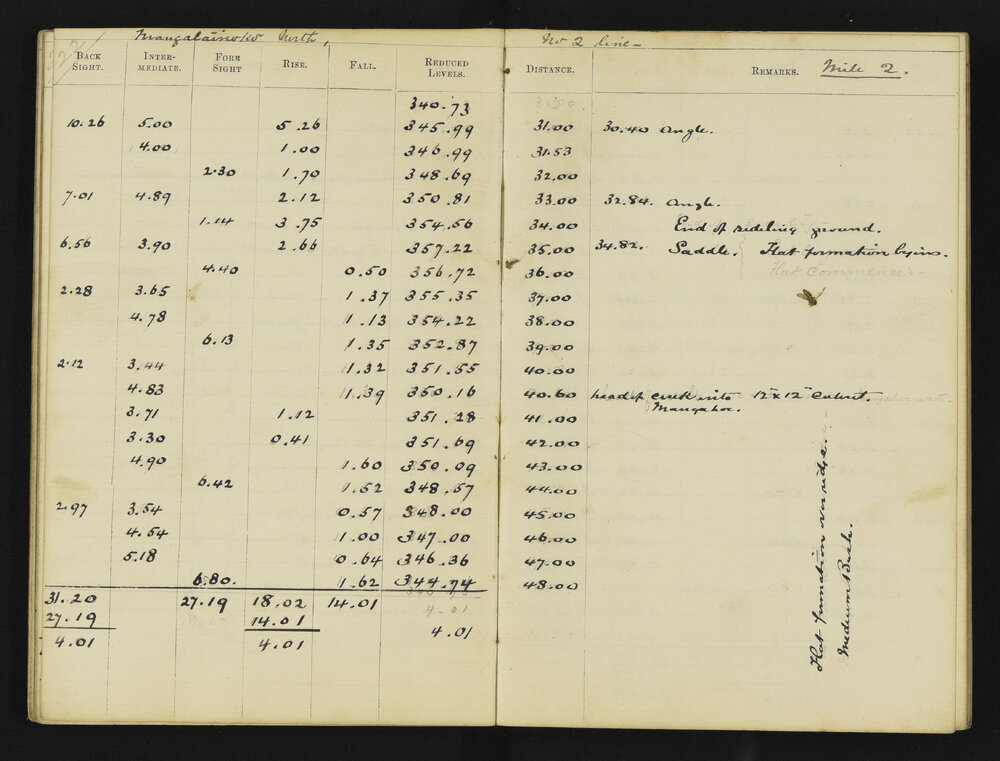 North,
No 2 line
Back Sight. Inter-mediate. Fore Sight Rise. Fall. Reduced Levels. Distance. Remarks. Mile 2.
340.73
10.26 5.00 5.26 345.99 31.00 30.40 Angle.
4.00 1.00 346.99 31.53
2.30 1.70 348.69 32.00
7.01 4.89 2.12 350.81 33.00 32.84. Angle.
1.14 3.75 354.56 34.00 End of sideling ground.
6.56 3.90 2.66 357.22 35.00 34.82. Saddle. Flat formation begins.
4.40 0.50 356.72 36.00 Flat Commences
2.28 3.65 1.37 355.35 37.00
4.78 1.13 354.22 38.00
6.13 1.35 352.87 39.00
2.12 3.44 1.32 351.55 40.00
4.83 1.39 350.16 40.60 head of creek into 12" x 12" Culvert.
Mangahoe.
3.71 1.12 351.28 41.00
3.30 0.41 351.69 42.00
4.90 1.60 350.09 43.00
6.42 1.52 348.57 44.00
2.97 3.54 0.57 348.00 45.00
4.54 1.00 347.00 46.00
5.18 0.64 346.36 47.00
6.80. 1.62 344.74 48.00
31.20 27.19 18.02 14.01
4.01
27.19 14.01
4.01 4.01 4.01
Flat formation over ridge.
Medium Bush.